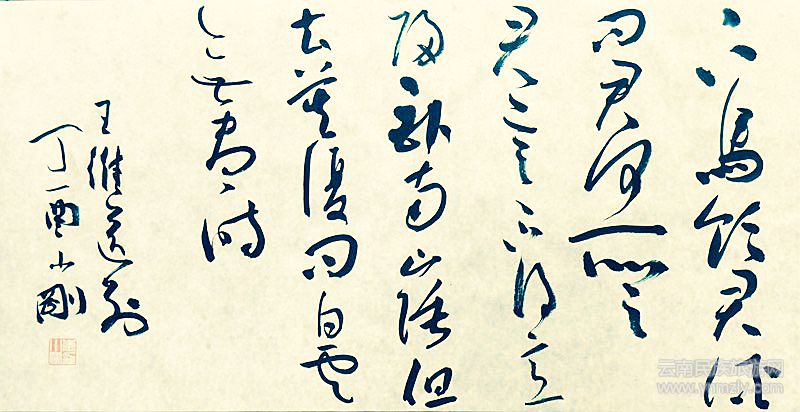 下馬飲君酒
問君何所之
君言不得意
歸臥南山陲但
去莫復問白雲
無盡時
王維送別
丁酉小剛
云南民族旅游网